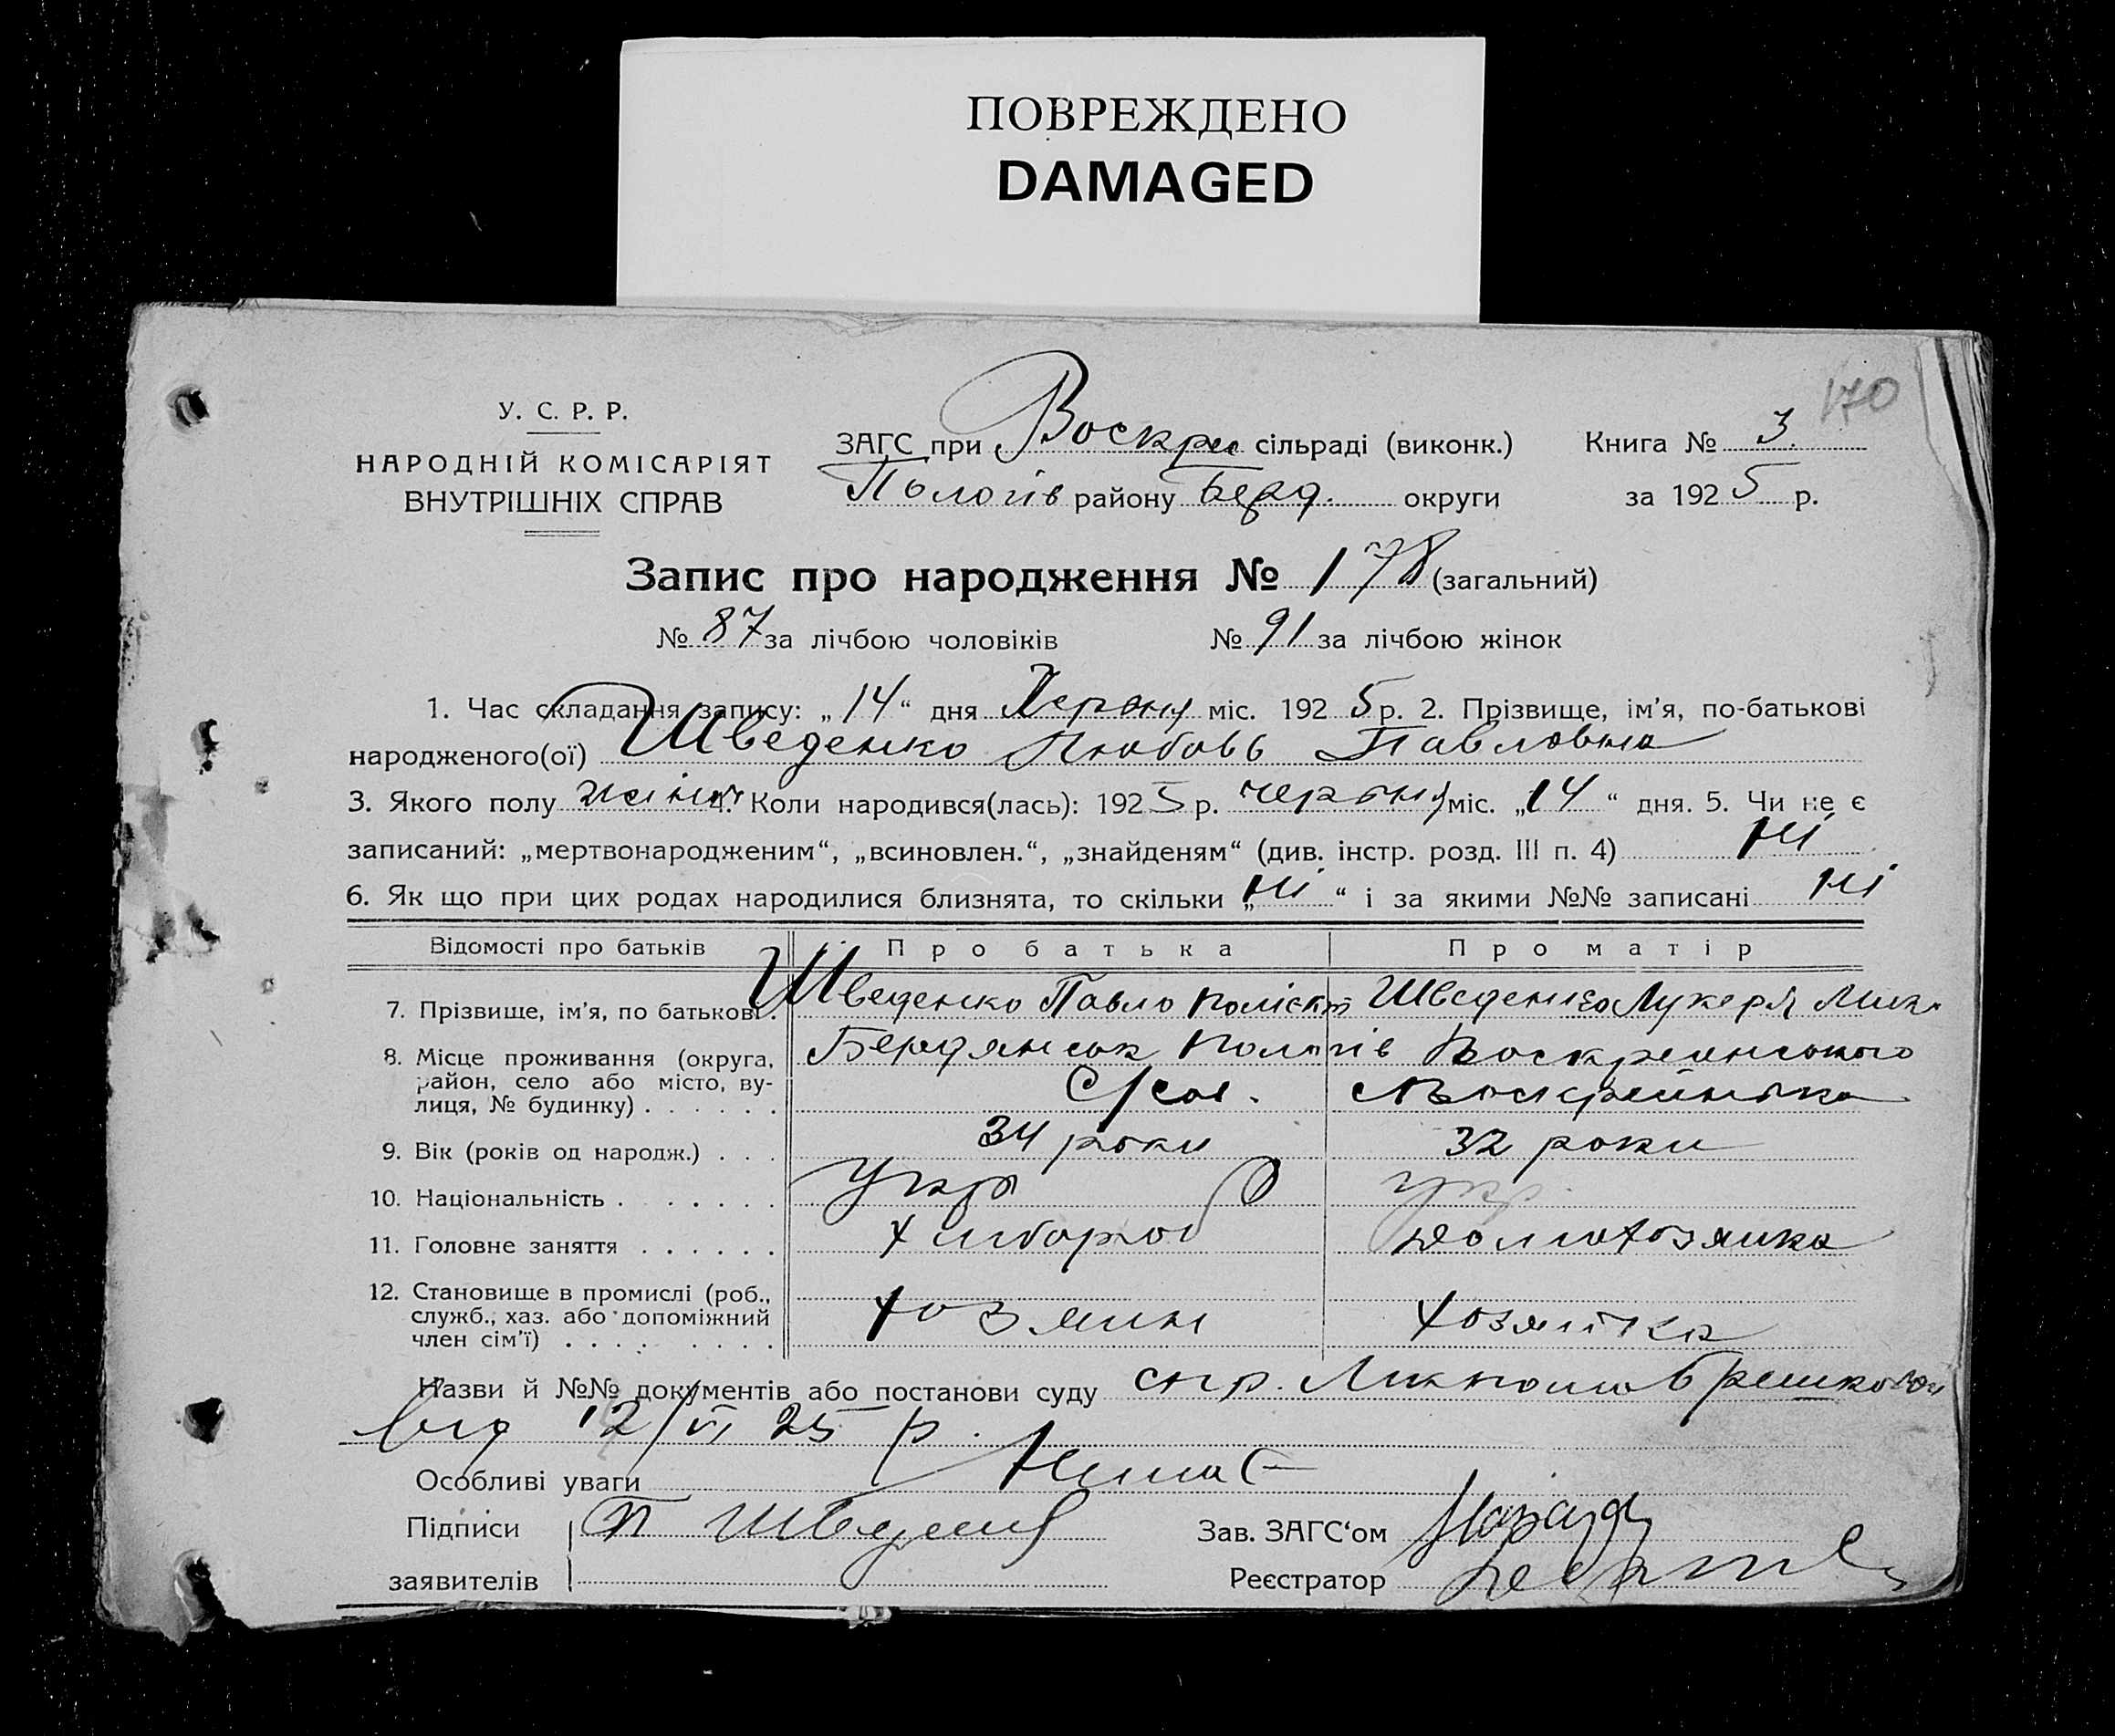 ПОВРЕЖДЕНО
DAMAGED
170
У. С. Р. Р.
НАРОДНІЙ КОМІСАРІЯТ
ВНУТРІШНІХ СПРАВ
ЗАГС при Воскрес сільраді (виконк.) Книга № 3.
Пологів району Берд. округи за 1925 р.
Запис про народження № 178 (загальний)
№ 87 за лічбою чоловіків № 91 за лічбою жінок
1. Час складання запису: „14“ дня Червня міс. 1925 р. 2. Прізвище, ім'я, по-батькові
народженого(ої) Шведенко Любовь Павловна
3. Якого полу жіноч 4. Коли народився(лась): 1925 р. червня міс. „14“ дня. 5. Чи не є
записаний: „мертвонародженим“, „всиновлен.“, „знайденям“ (див. інстр. розд. III п. 4) ні
6. Як що при цих родах народилися близнята, то скільки „ні“ і за якими №№ записані ні
Відомості про батьків Про батька Про матір
7. Прізвище, ім'я, по батькові. Шведенко Павло Шведенко Лукеря
8. Місце проживання (округа, Бердянськ Пологів Воскресенського
район, село або місто, ву-
лиця, № будинку)
9. Вік (років од народж.) 34 роки 32 роки
10. Національність Укр укр.
11. Головне заняття Хлібороб домохозяйка
12. Становище в промислі (роб.,
служб., хаз. або допоміжний
член сім'ї) хозяин хозяйка
Назви й №№ документів або постанови суду
від 12/VI 25 р.
Особливі уваги Нима
Підписи П Шведенко Зав. ЗАГС'ом
заявителів Реєстратор